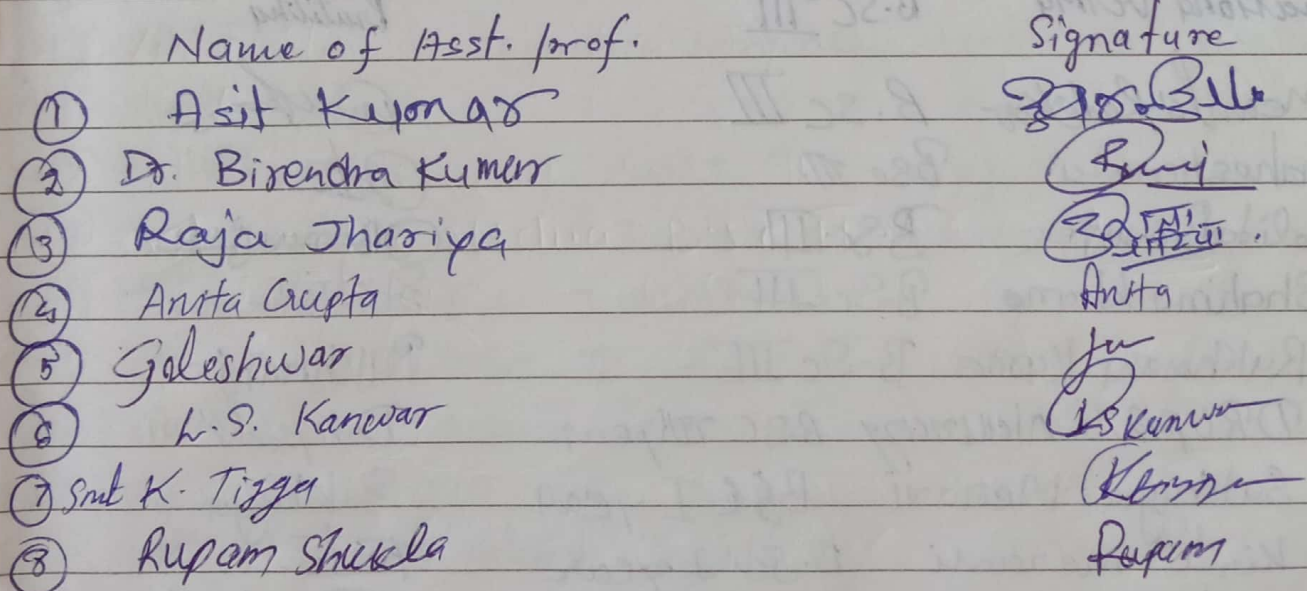 Name of Asst. prof. Signature
① Asit Kumar
② Dr. Birendra Kumar
③ Raja Jhariya
④ Anita Gupta Anita
⑤ Goleshwar
⑥ L.S. Kanwar LS Kanwar
⑦ Smt K. Tigga
⑧ Rupam Shukla Rupam